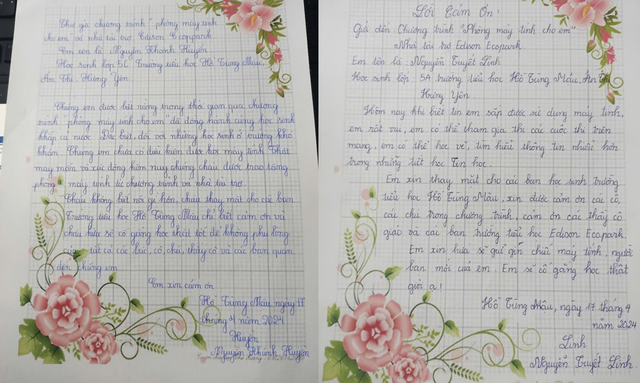 Thư gửi chương trình "phòng máy tính
cho em" và nhà tài trợ Edison Ecopark.
Em tên là Nguyễn Khánh Huyền
Học sinh lớp 5C Trường tiểu học Hồ Tùng Mậu,
Ân Thi, Hưng Yên.
Chúng em được biết rằng trong thời gian qua, chương
trình "phòng máy tính cho em" đã đồng hành cùng học sinh
khắp cả nước. Đặc biệt, đối với những học sinh ở trường khó
khăn. Chúng em chưa có điều kiện được học máy tính. Thật
may mắn và xúc động hôm nay chúng cháu được trao tặng
phòng máy tính từ chương trình và nhà tài trợ.
Cháu không biết nói gì hơn, cháu thay mặt cho các bạn
Trường tiểu học Hồ Tùng Mậu chỉ biết cảm ơn và
cháu hứa sẽ cố gắng học thật tốt để không phụ lòng
của tất cả các bác, cô, chú, thầy cô và các bạn quan
đến chúng em
Em xin cảm ơn
Hồ Tùng Mậu ngày 17
tháng 4 năm 2024
Huyền
Nguyễn Khánh Huyền
Lời Cảm Ơn!
Gửi đến Chương trình "Phòng máy tính cho em"
Nhà tài trợ Edison Ecopark
Em tên là: Nguyễn Tuyết Linh
Học sinh lớp: 5A trường tiểu học Hồ Tùng Mậu, Ân Thi
Hưng Yên
Hôm nay khi biết tin em sắp được sử dụng máy tính,
em rất vui, em có thể tham gia thi các cuộc thi trên
mạng, em có thể học vẽ, tìm hiểu thông tin nhiều hơn
trong những tiết học Tin học.
Em xin thay mặt cho các bạn học sinh trường
tiểu học Hồ Tùng Mậu, xin được cảm ơn các cô,
các chú trong chương trình, cảm ơn các thầy cô
giáo và các bạn trường tiểu học Edison Ecopark.
Em xin hứa sẽ giữ gìn chiếc máy tính, người
bạn mới của em. Em sẽ cố gắng học thật
giỏi ạ!
Hồ Tùng Mậu, ngày 17 tháng 4
năm 2024
Linh
Nguyễn Tuyết Linh